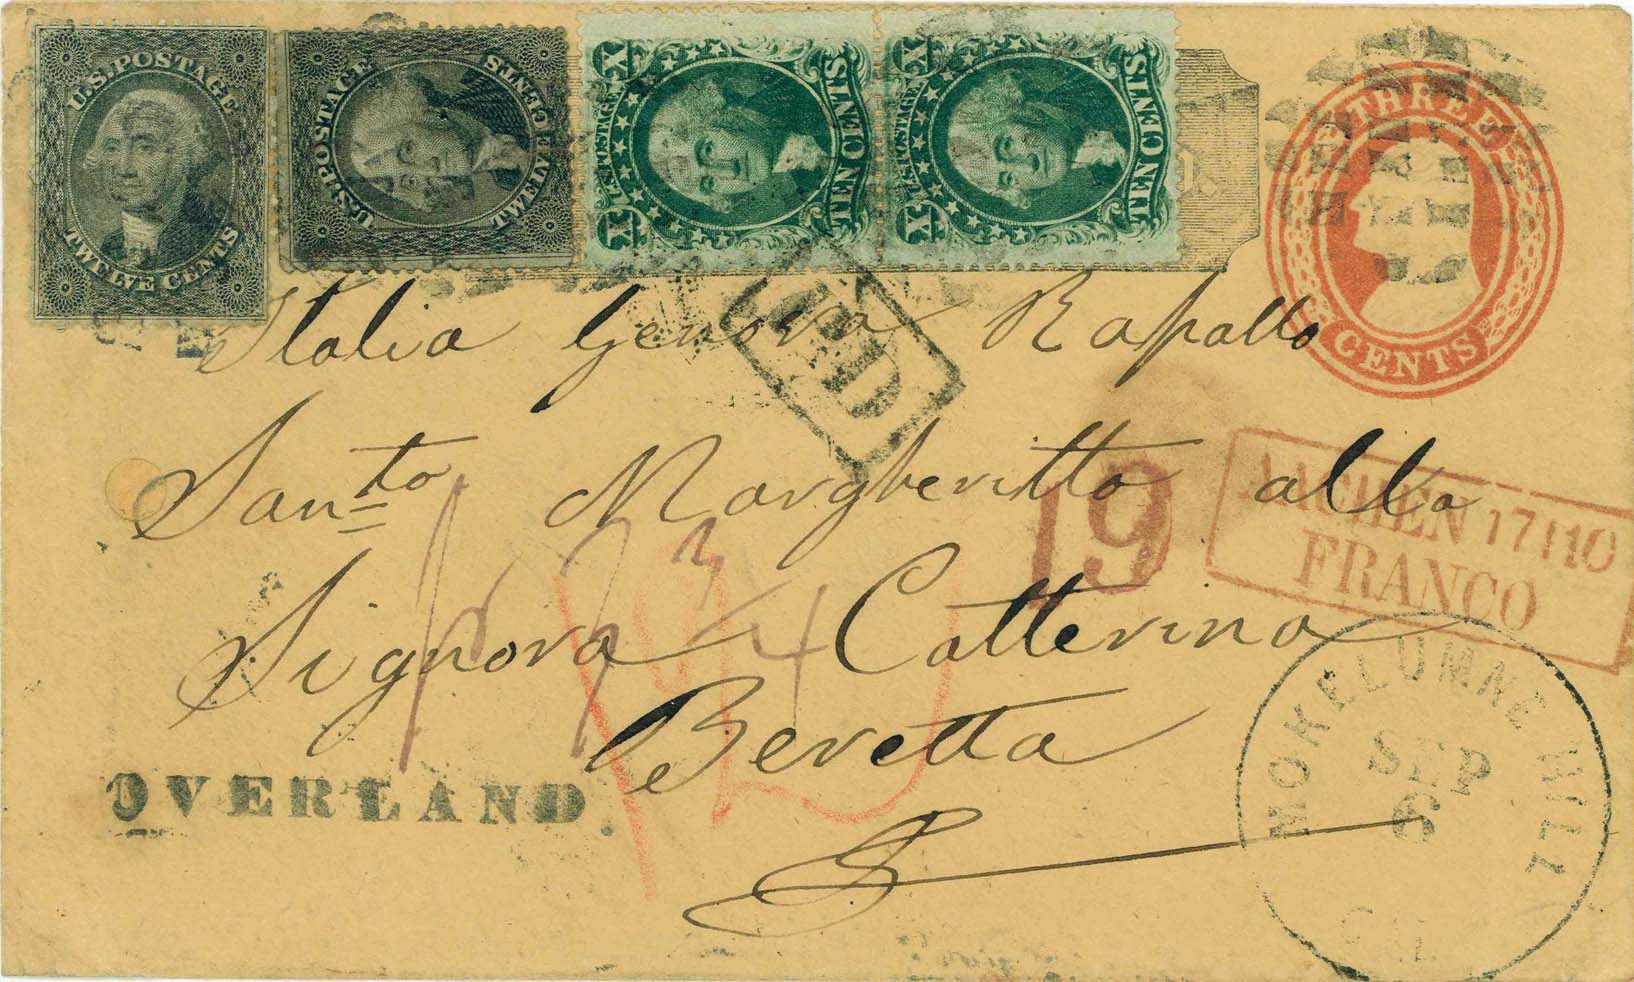 U.S. POSTAGE
TWELVE CENTS
U.S. POSTAGE
TWELVE CENTS
X U.S. POSTAGE X
TEN CENTS
X U.S. POSTAGE X
TEN CENTS
THREE
CENTS
Italia Genova Rapallo
PD
Santo Margheritto alla
19
AACHEN 17 10
FRANCO
Signora Catterina
Beretta
OVERLAND.
MOKELUMNE HILL
SEP
6
CAL.